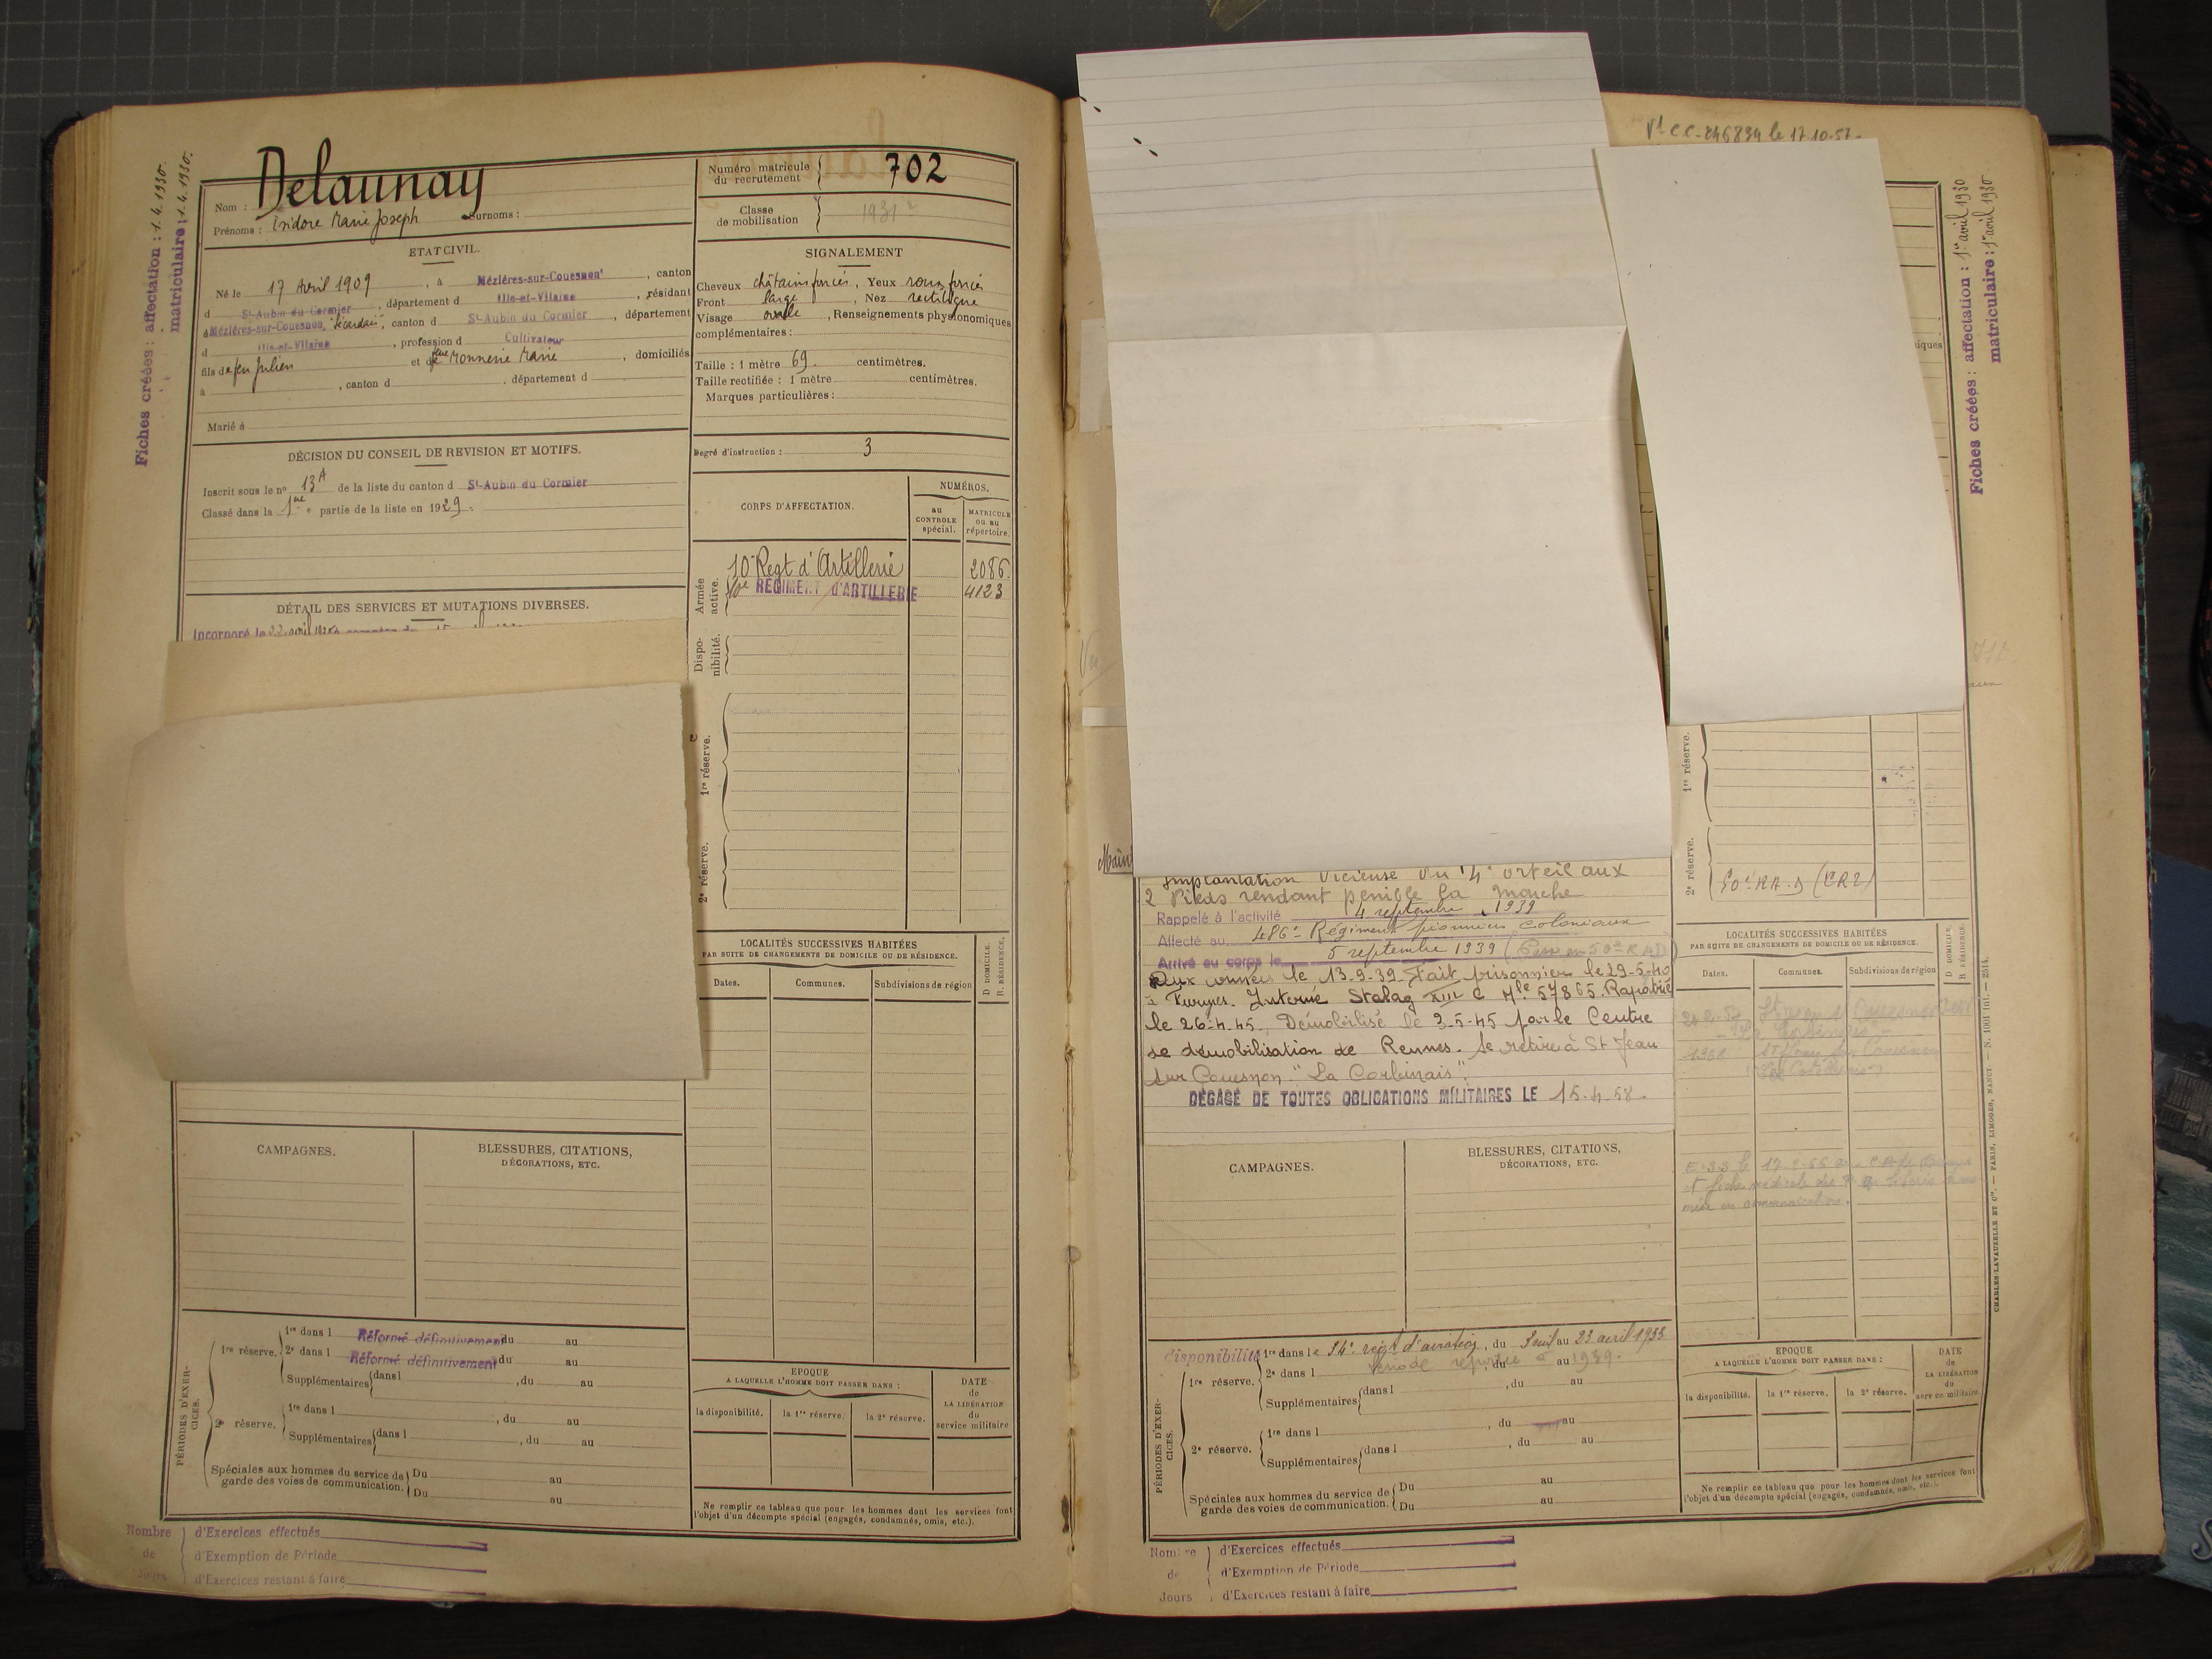 Fiches créées : affectation : 1.4.1930.
matriculaire : 1.4.1930.
Nom : Delaunay
Prénoms : Isidore Marie Joseph Surnoms :
Numéro matricule du recrutement 702
Classe de mobilisation 1931
ETAT CIVIL.
Né le 17 Avril 1909, à Mézières-sur-Couesnon, canton
d St-Aubin du Cormier, département d Ille-et-Vilaine, résidant
à Mézières-sur-Couesnon, canton d St-Aubin du Cormier, département
d Ille-et-Vilaine, profession d Cultivateur
fils de feu Julien et de Monnerie Marie, domiciliés
à , canton d , département d
Marié à
SIGNALEMENT
Cheveux châtains foncés, Yeux roux foncés
Front large, Nez rectiligne
Visage ovale, Renseignements physionomiques
complémentaires :
Taille : 1 mètre 69 centimètres.
Taille rectifiée : 1 mètre centimètres.
Marques particulières :
Degré d'instruction : 3
DÉCISION DU CONSEIL DE REVISION ET MOTIFS.
Inscrit sous le nº 13A de la liste du canton d St-Aubin du Cormier
Classé dans la 1re partie de la liste en 1929.
DÉTAIL DES SERVICES ET MUTATIONS DIVERSES.
Incorporé le 22 avril
CORPS D'AFFECTATION.
NUMÉROS.
au CONTROLE spécial.
MATRICULE ou au répertoire.
Armée active.
10e Regt d'Artillerie 2086
10e RÉGIMENT d'ARTILLERIE 4123
Disponibilité.
1re réserve.
2e réserve.
LOCALITÉS SUCCESSIVES HABITÉES
PAR SUITE DE CHANGEMENTS DE DOMICILE OU DE RÉSIDENCE.
D DOMICILE.
R. RÉSIDENCE.
Dates. Communes. Subdivisions de région
CAMPAGNES.
BLESSURES, CITATIONS,
DÉCORATIONS, ETC.
PÉRIODES D'EXERCICES.
1re réserve.
1re dans l Réformé définitivement du au
2e dans l Réformé définitivement du au
Supplémentaires dans l , du au
2e réserve.
1re dans l , du au
Supplémentaires dans l , du au
Spéciales aux hommes du service de garde des voies de communication.
Du au
Du au
EPOQUE
A LAQUELLE L'HOMME DOIT PASSER DANS :
la disponibilité. la 1re réserve. la 2e réserve.
DATE
de
LA LIBÉRATION
du
service militaire
Ne remplir ce tableau que pour les hommes dont les services font
l'objet d'un décompte spécial (engagés, condamnés, omis, etc.).
Nombre de Jours
d'Exercices effectués
d'Exemption de Période
d'Exercices restant à faire
le 17-10-57
Fiches créées : affectation : 1er avril 1930
matriculaire : 1er avril 1930
Implantation vicieuse du 4e orteil aux
2 Pieds rendant penible la marche
Rappelé à l'activité 4 septembre 1939
Affecté au 486e Régiment pionniers coloniaux
Arrivé au corps le 5 septembre 1939 (Passé au 50e RAD)
Aux armées le 13-9-39. Fait prisonnier le 29-5-40
à Furnes. Interné Stalag XIII C Mle 57865. Rapatrié
le 26-4-45. Démobilisé le 3-5-45 par le Centre
de démobilisation de Rennes. Se retire à St Jean
sur Couesnon "La Corbinais"
DÉGAGÉ DE TOUTES OBLIGATIONS MILITAIRES LE 15-4-58.
1re réserve.
2e réserve.
LOCALITÉS SUCCESSIVES HABITÉES
PAR SUITE DE CHANGEMENTS DE DOMICILE OU DE RÉSIDENCE.
D DOMICILE.
R RÉSIDENCE.
Dates. Communes. Subdivisions de région
CAMPAGNES.
BLESSURES, CITATIONS,
DÉCORATIONS, ETC.
mise en communication.
PÉRIODES D'EXERCICES.
disponibilité
1re réserve.
1re dans le 34e régt d'aviation, du au 23 avril 1933
2e dans l période au 1939.
Supplémentaires dans l , du au
2e réserve.
1re dans l , du au
Supplémentaires dans l , du au
Spéciales aux hommes du service de garde des voies de communication.
Du au
Du au
EPOQUE
A LAQUELLE L'HOMME DOIT PASSER DANS :
la disponibilité. la 1re réserve. la 2e réserve.
DATE
de
LA LIBÉRATION
du
service militaire
Ne remplir ce tableau que pour les hommes dont les services font
l'objet d'un décompte spécial (engagés, condamnés, omis, etc.).
CHARLES-LAVAUZELLE ET Cie. — PARIS, LIMOGES, NANCY
Nombre de Jours
d'Exercices effectués
d'Exemption de Période
d'Exercices restant à faire